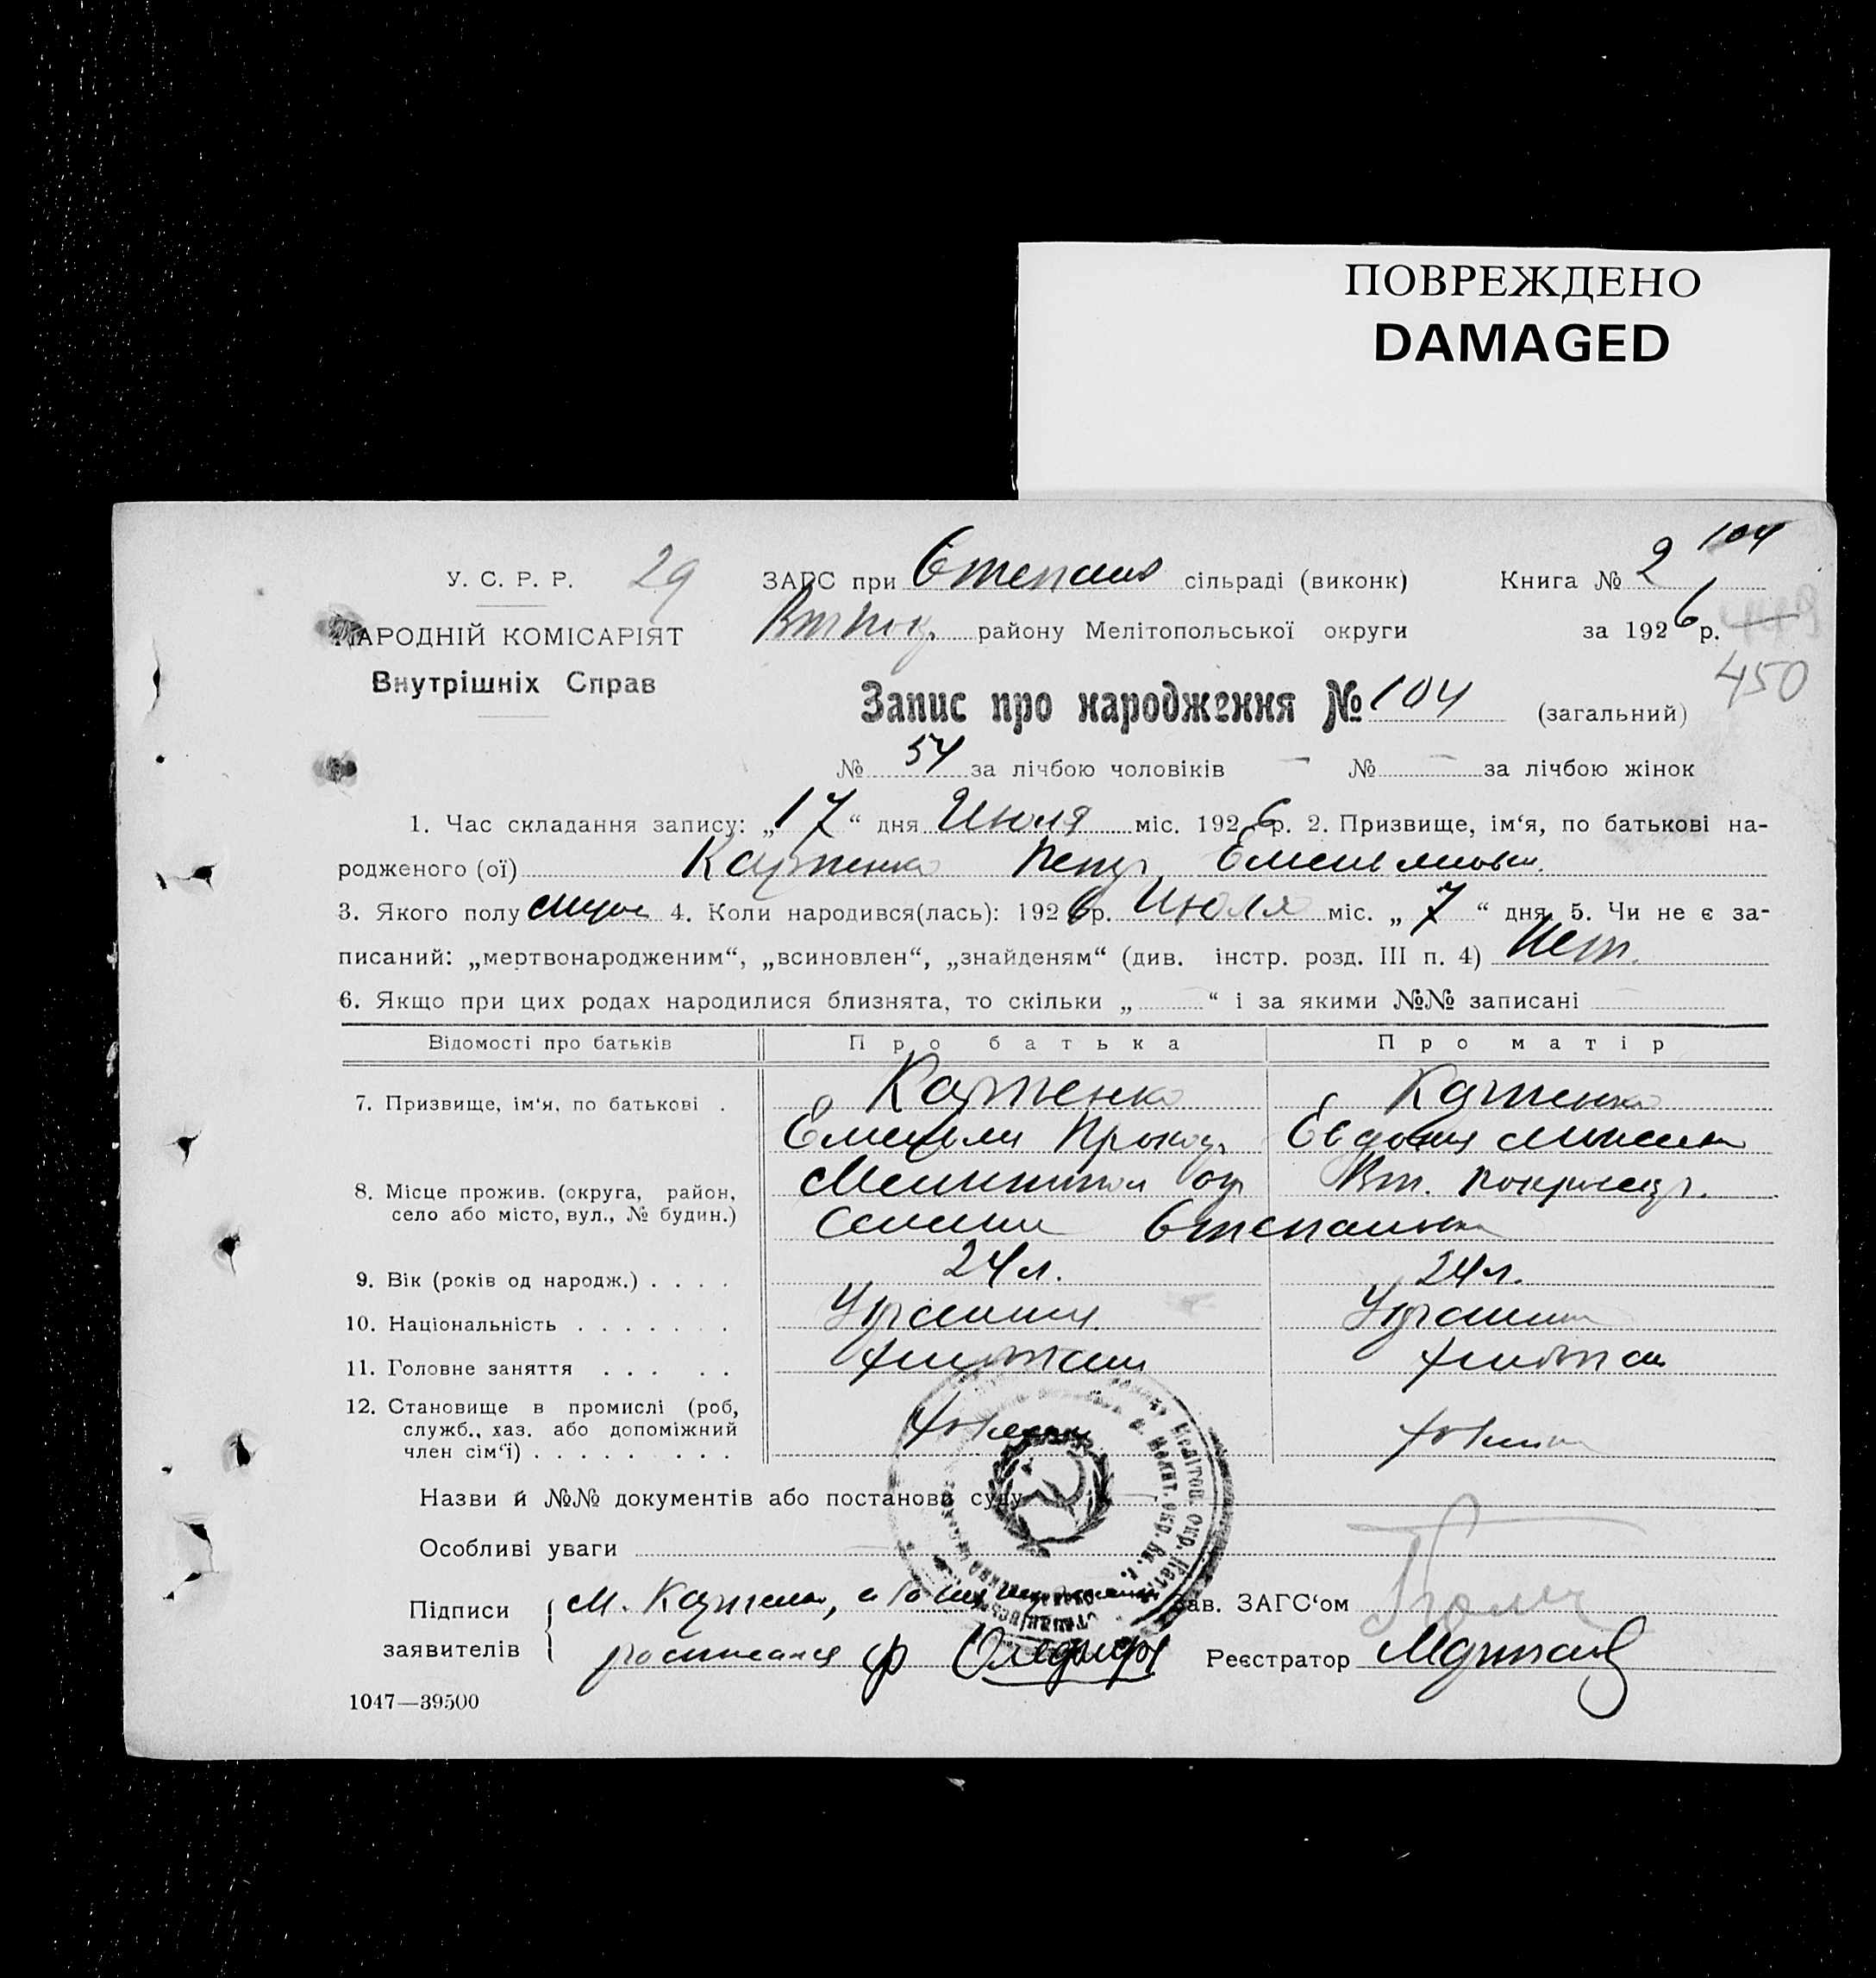 ПОВРЕЖДЕНО
DAMAGED
104
У. С. Р. Р. 29 ЗАГС при Степанов сільраді (виконк) Книга № 2
НАРОДНІЙ КОМІСАРІЯТ району Мелітопольської округи за 1926 р. 449
Внутрішніх Справ 450
Запис про народження № 104 (загальний)
№ 54 за лічбою чоловіків — № — за лічбою жінок
1. Час складання запису: „17“ дня Июля міс. 1926 р. 2. Призвище, ім‘я, по батькові на-
родженого (ої) Карпенко Петр Емельянович.
3. Якого полу 4. Коли народився(лась): 1926 р. Июля міс. „7“ дня. 5. Чи не є за-
писаний: „мертвонародженим“, „всиновлен“, „знайденям“ (див. інстр. розд. III п. 4) Нет.
6. Якщо при цих родах народилися близнята, то скільки „ “ і за якими №№ записані
Відомості про батьків Про батька Про матір
7. Призвище, ім‘я, по батькові . Карпенко Карпенко
Емельян Прокоф. Евдокия
8. Місце прожив. (округа, район, Вт. Покровск р.
село або місто, вул., № будин.) Степановка
9. Вік (років од народж.) . . . . 24 л. 24 л.
10. Національність . . . . . . . Украинец
11. Головне заняття . . . . .
12. Становище в промислі (роб,
служб., хаз. або допоміжний
член сім‘ї) . . . . . . . .
Назви й №№ документів або постанови суду
Особливі уваги
Підписи М. Карпенко, Зав. ЗАГС‘ом
заявителів расписался Реєстратор
1047—39500